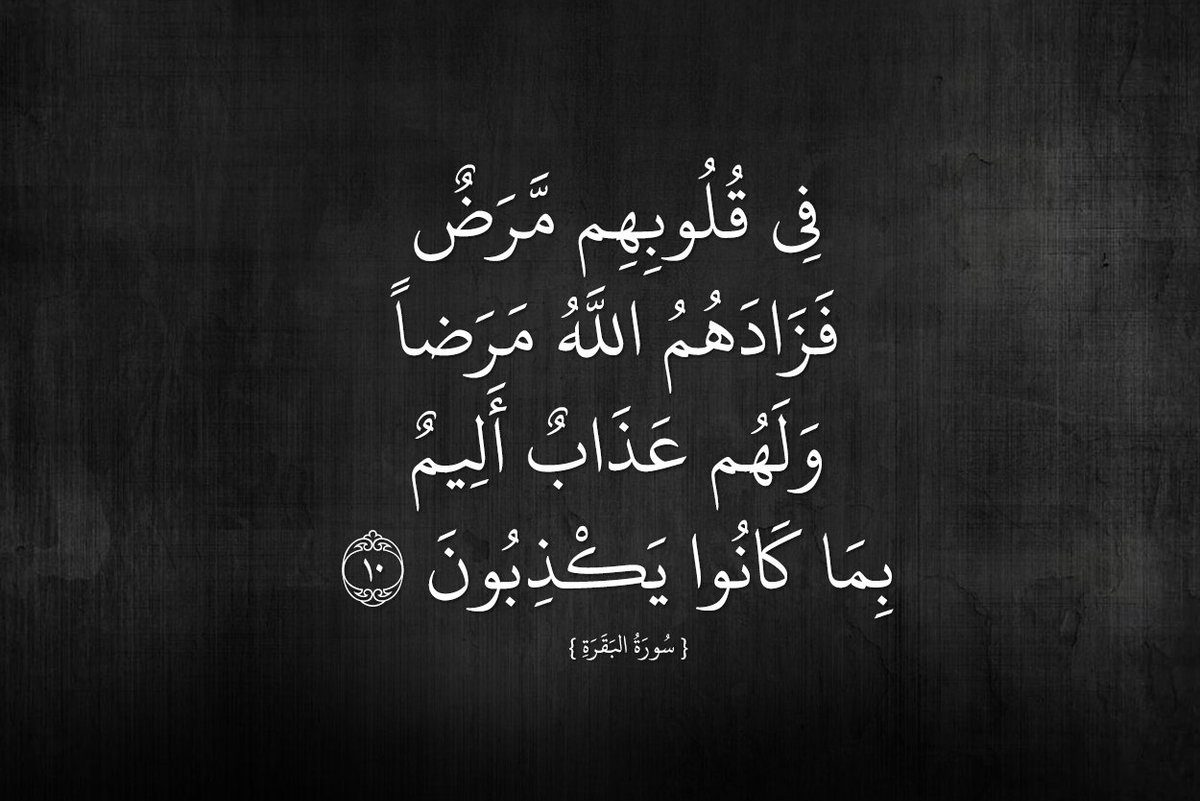 فِى قُلُوبِهِم مَّرَضٌ
فَزَادَهُمُ اللَّهُ مَرَضاً
وَلَهُم عَذَابٌ أَلِيمٌ
بِمَا كَانُوا يَكْذِبُونَ ١٠
{ سُورَةُ البَقَرَةِ }